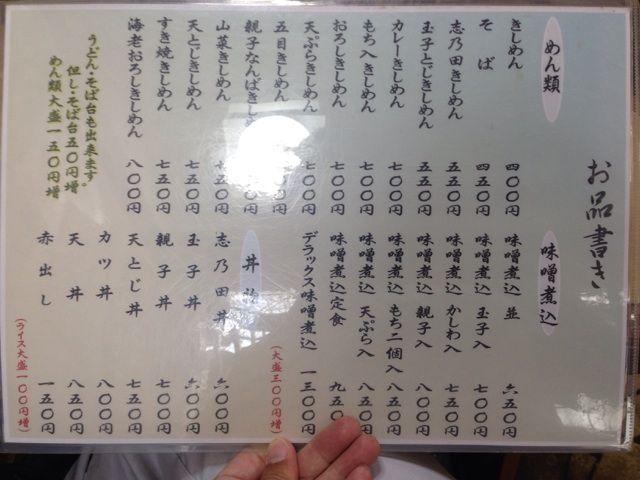 お品書き
めん類
きしめん 四〇〇円
そば 四五〇円
志乃田きしめん 五五〇円
玉子とじきしめん 五五〇円
カレーきしめん 七〇〇円
もち入きしめん 七〇〇円
おろしきしめん 七〇〇円
天ぷらきしめん 七〇〇円
五目きしめん
親子なんばきしめん
山菜きしめん 七五〇円
天とじきしめん 七五〇円
すき焼きしめん 七五〇円
海老おろしきしめん 八〇〇円
うどん・そば台も出来ます。
但し・そば台五〇円増
めん類大盛一五〇円増
味噌煮込
味噌煮込 並 六五〇円
味噌煮込 玉子入 七〇〇円
味噌煮込 かしわ入 七五〇円
味噌煮込 親子入 八〇〇円
味噌煮込 もち二個入 八五〇円
味噌煮込 天ぷら入 八五〇円
味噌煮込定食 九五〇
デラックス味噌煮込 一三〇〇円
(大盛三〇〇円増)
丼
志乃田丼 六〇〇円
玉子丼 六〇〇円
親子丼 七〇〇円
天とじ丼 七五〇円
カツ丼 八〇〇円
天丼 八五〇円
赤出し 一五〇円
(ライス大盛一〇〇円増)